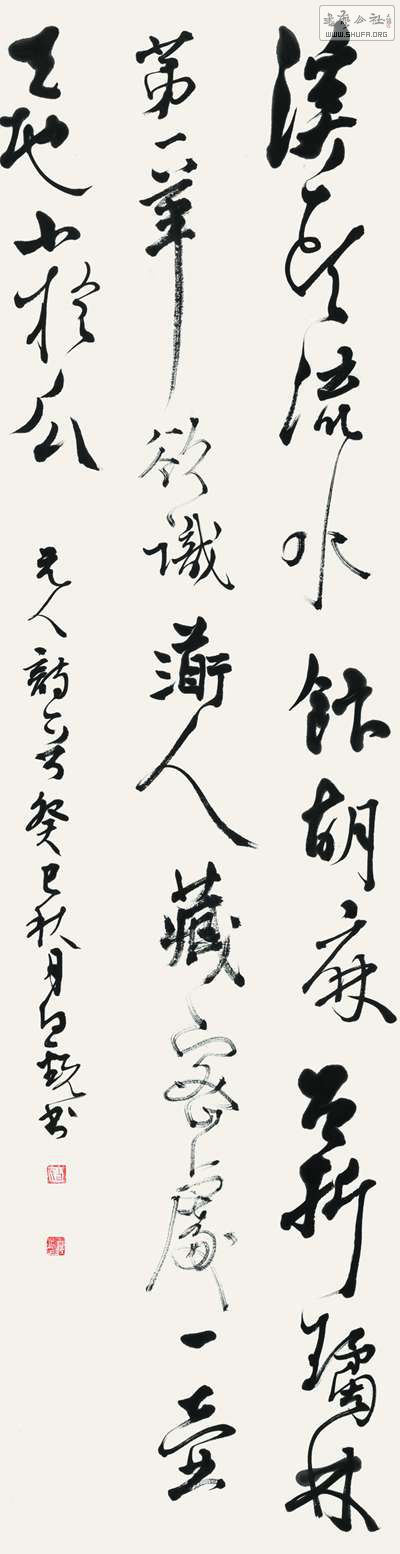 書法公社
WWW.SHUFA.ORG
溪頭流水飯胡麻曾折璚林
第一華欲識衜人藏密處一壺
天地小於瓜
元人詩一首癸巳秋月書